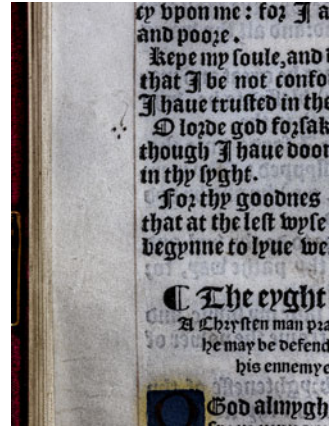 cy vpon me : for I a
and poore.
kepe my soule, and
that I be not confo
I haue trusted in the
O lorde god forsak
though I haue doon
in thy syght.
For thy goodnes
that at the lest wyse
begynne to lyue we
¶ The eyght
A Chrysten man pra
he may be defend
his ennemye
God almygh